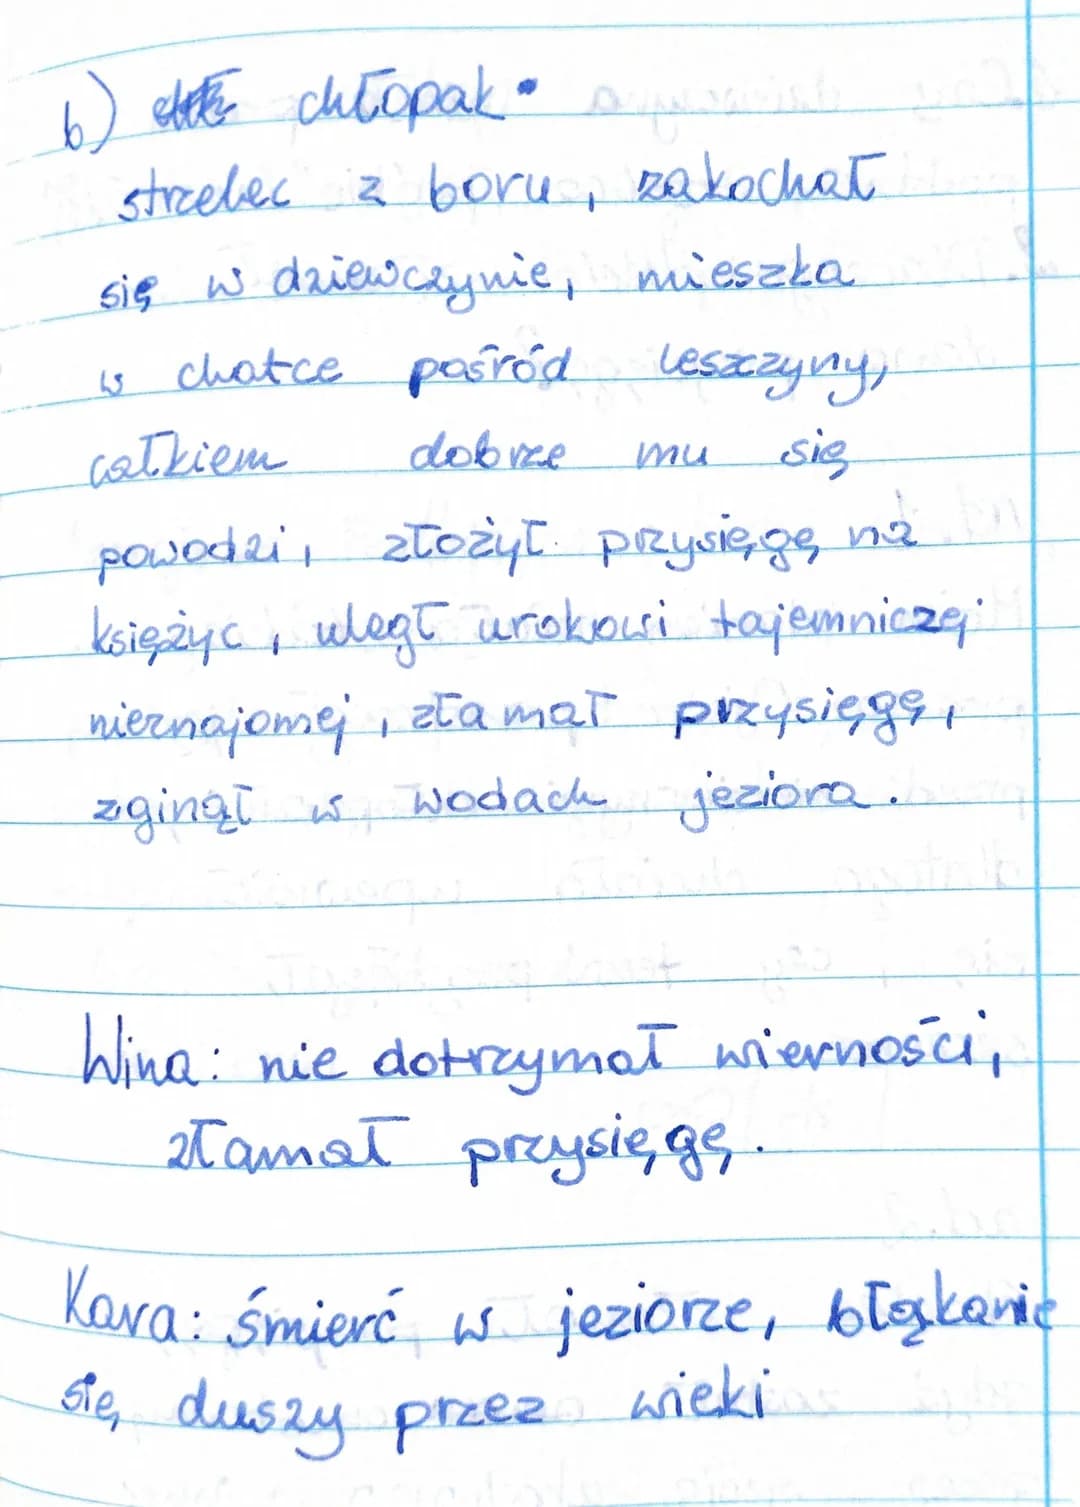 b) chłopak
strzelec z boru, zakochał
się w dziewczynie, mieszka
w chatce pośród leszczyny,
całkiem dobrze mu się
powodzi, złożył przysięgę na
księżyc, uległ urokowi tajemniczej
nieznajomej, złamał przysięgę,
zginął w wodach jeziora.
Wina: nie dotrzymał wierności,
złamał przysięgę.
Kara: śmierć w jeziorze, błąkanie
się duszy przez wieki